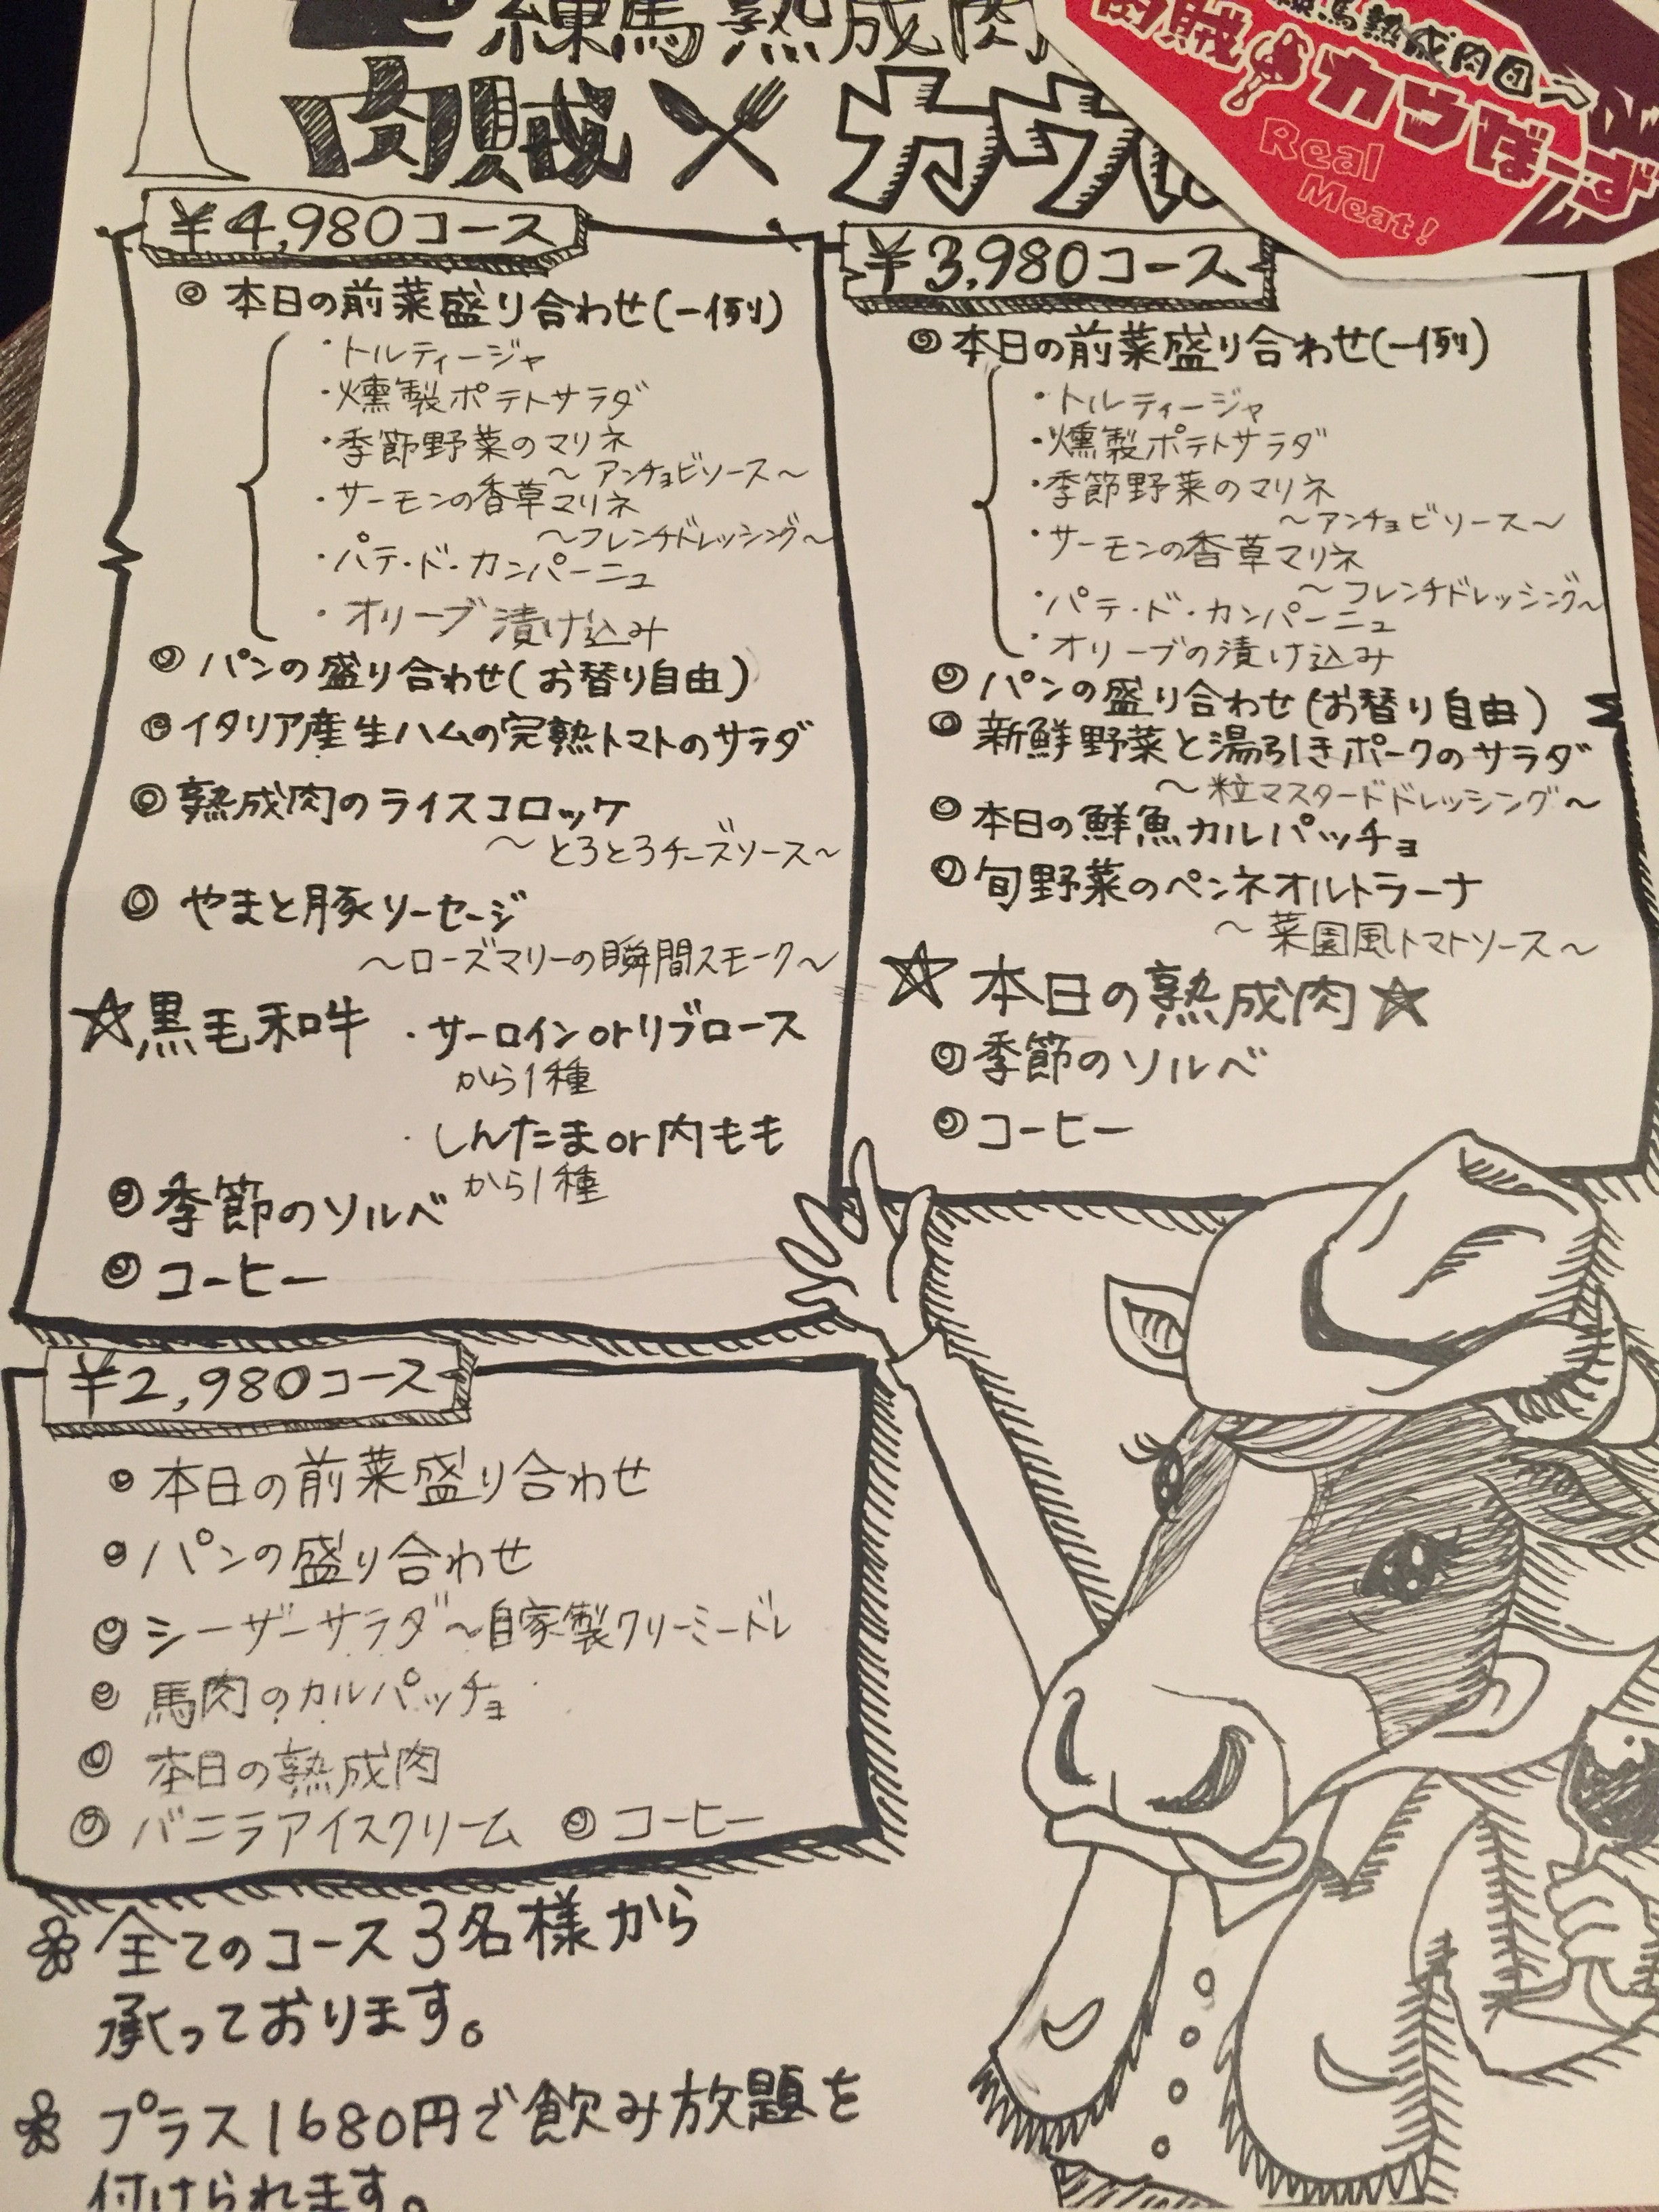 練馬熟成肉
肉賊 カウ
馬熟成肉団
肉賊 カウぼーず
Real
Meat!
¥4,980コース
◎本日の前菜盛り合わせ(一例)
・トルティージャ
・燻製ポテトサラダ
・季節野菜のマリネ
〜アンチョビソース〜
・サーモンの香草マリネ
〜フレンチドレッシング〜
・パテ・ド・カンパーニュ
・オリーブ漬け込み
◎パンの盛り合わせ(お替り自由)
◎イタリア産生ハムの完熟トマトのサラダ
◎熟成肉のライスコロッケ
〜とろとろチーズソース〜
◎やまと豚ソーセージ
〜ローズマリーの瞬間スモーク〜
☆黒毛和牛 ・サーロインorリブロース
から1種
・しんたまor内もも
から1種
◎季節のソルベ
◎コーヒー
¥3,980コース
◎本日の前菜盛り合わせ(一例)
・トルティージャ
・燻製ポテトサラダ
・季節野菜のマリネ
〜アンチョビソース〜
・サーモンの香草マリネ
〜フレンチドレッシング〜
・パテ・ド・カンパーニュ
・オリーブの漬け込み
◎パンの盛り合わせ(お替り自由)
◎新鮮野菜と湯引きポークのサラダ
〜粒マスタードドレッシング〜
◎本日の鮮魚カルパッチョ
◎旬野菜のペンネオルトラーナ
〜菜園風トマトソース〜
☆本日の熟成肉☆
◎季節のソルベ
◎コーヒー
¥2,980コース
◎本日の前菜盛り合わせ
◎パンの盛り合わせ
◎シーザーサラダ〜自家製クリーミードレ
◎馬肉のカルパッチョ
◎本日の熟成肉
◎バニラアイスクリーム ◎コーヒー
全てのコース3名様から
承っております。
プラス1680円で飲み放題を
付けられます。